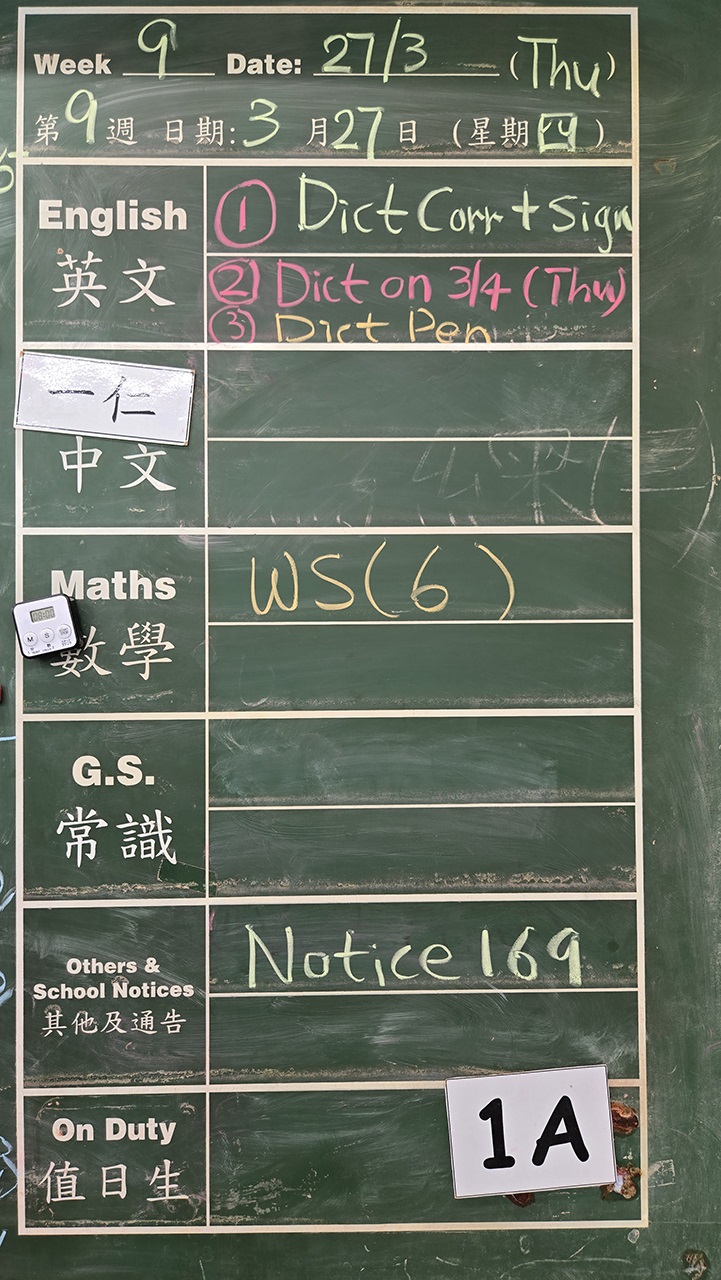 Week 9 Date: 27/3 (Thu)
第9週 日期:3月27日 (星期四)
English
英文
① Dict Corr + Sign
② Dict on 3/4 (Thu)
③ Dict Pen
一仁
中文
Maths
數學
WS(6)
G.S.
常識
Others &
School Notices
其他及通告
Notice 169
On Duty
值日生
1A